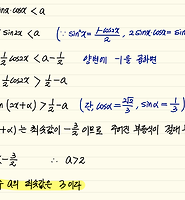 sinx cosx < a
sin2x < a (∵ sin²x = \frac{1-cos2x}{2}, 2sinx cosx = sin
\frac{1}{2}cos2x < a - \frac{1}{2} 양변에 -1을 곱하면
\frac{1}{2}cos2x > \frac{1}{2} - a
(2x+α) > \frac{1}{2} - a (단, cosα = \frac{2√2}{3}, sinα = \frac{1}{3})
+α) 는 최솟값이 -\frac{3}{2} 이므로 주어진 부등식이 절대
-\frac{3}{2} ∴ a > 2
a의 최솟값은 3이다